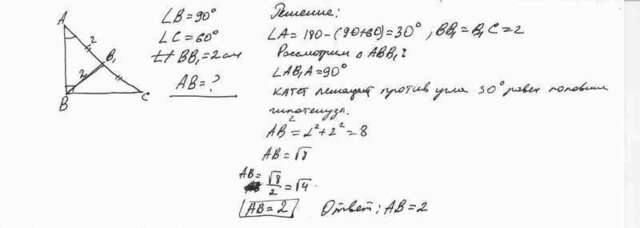 A
2
B₁
2
B
C
∠B=90°
∠C=60°
BB₁=2см
AB=?
Решение:
∠A=180-(90+60)=30°, BB₁=B₁C=2
Рассмотрим △ABB₁:
∠AB₁A=90°
катет лежащий против угла 30° равен половине
гипотенузы.
AB²=2²+2²=8
AB=√8
AB=
√8/2=√4.
AB=2
Ответ: AB=2